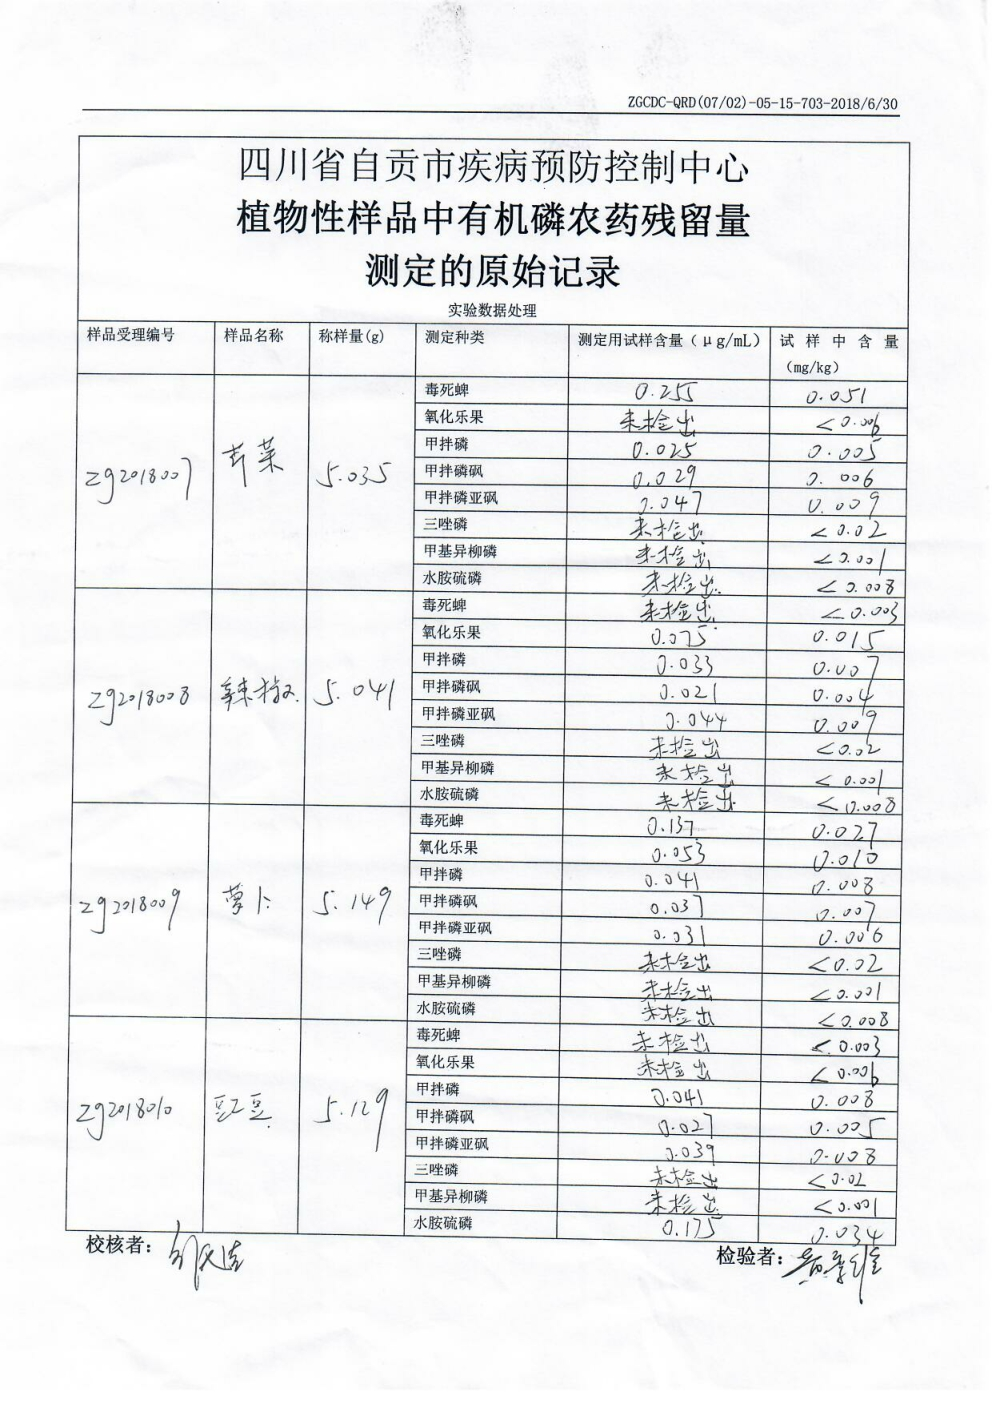 ZGCDC-QRD(07/02)-05-15-703-2018/6/30
四川省自贡市疾病预防控制中心
植物性样品中有机磷农药残留量
测定的原始记录
实验数据处理
样品受理编号 样品名称 称样量(g) 测定种类 测定用试样含量（μg/mL） 试样中含量（mg/kg）
zg2018007 芹菜 5.035
毒死蜱 0.255 0.051
氧化乐果 未检出 <0.006
甲拌磷 0.025 0.005
甲拌磷砜 0.029 0.006
甲拌磷亚砜 0.047 0.009
三唑磷 未检出 <0.02
甲基异柳磷 未检出 <0.001
水胺硫磷 未检出 <0.008
zg2018008 辣椒 5.041
毒死蜱 未检出 <0.003
氧化乐果 0.075 0.015
甲拌磷 0.033 0.007
甲拌磷砜 0.021 0.004
甲拌磷亚砜 0.044 0.009
三唑磷 未检出 <0.02
甲基异柳磷 未检出 <0.001
水胺硫磷 未检出 <0.008
zg2018009 萝卜 5.149
毒死蜱 0.137 0.027
氧化乐果 0.053 0.010
甲拌磷 0.041 0.008
甲拌磷砜 0.037 0.007
甲拌磷亚砜 0.031 0.006
三唑磷 未检出 <0.02
甲基异柳磷 未检出 <0.001
水胺硫磷 未检出 <0.008
zg2018010 豇豆 5.129
毒死蜱 未检出 <0.003
氧化乐果 未检出 <0.006
甲拌磷 0.041 0.008
甲拌磷砜 0.027 0.005
甲拌磷亚砜 0.039 0.008
三唑磷 未检出 <0.02
甲基异柳磷 未检出 <0.001
水胺硫磷 0.175 0.034
校核者：
检验者：